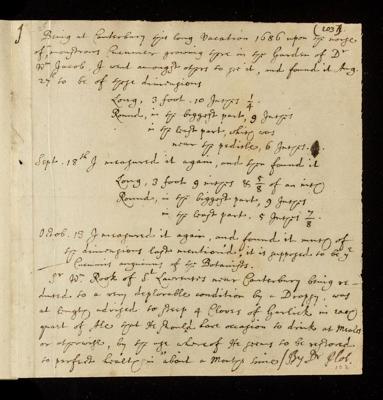 (203)
Being at Canterbury this long Vacation 1686 upon the noyse
of monstrous Cucumer growing there in the Garden of Dr
Wm Jacob. I went amongst others to see it, and found it Aug.
27th to be of these dimensions
Long, 3 foot. 10 Inches 1/4.
Round, in the biggest part, 9 Inches
in the least part, which was
near the pedicle, 6 Inches.
Sept. 18th I measured it again, and then found it
Long, 3 foot 9 inches & 5/8 of an inch
Round, in the biggest part, 9 Inches
in the least part, 5 Inches 7/8.
Octob. 13 I measured it again, and found it much of
the dimensions last mention'd; it is supposed to be ye
Cucumis anguinus of the Botanists.
Sr Wm Rook of St Laurences near Canterbury being re-
duced to a very deplorable condition by a Dropsy, was
at length advised to steep 4 Cloves of Garlick in each
quart of Ale that He should have occasion to drink at Meales
or otherwise, by the use whereof He seems to be restored
to perfect health in about a Months time / By Dr Plot.
102